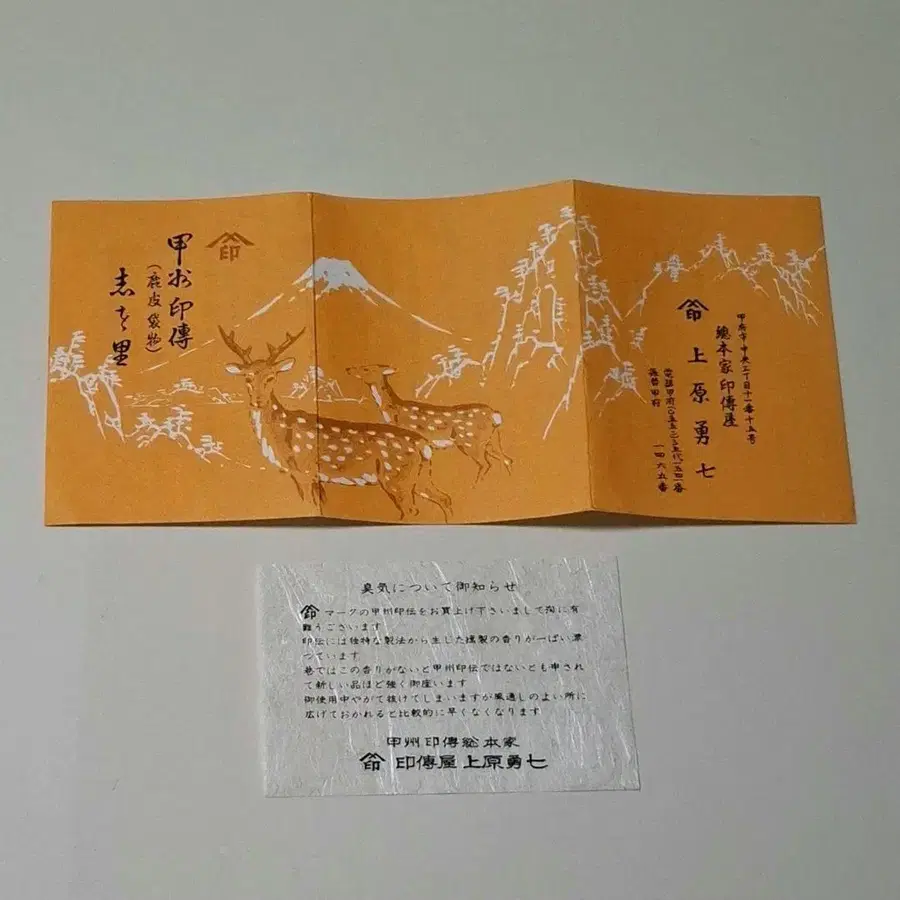 印
甲州印傳
(鹿皮袋物)
志をり里
甲府市中央三丁目十一番十五号
總本家印傳屋
印 上原勇七
電話甲府
振替甲府 一四六五番
臭気について御知らせ
印マークの甲州印伝をお買上げ下さいまして洵に有
難うございます
印伝には独特な製法から生じた燻製の香りが一ぱい漂
つています
巷ではこの香りがないと甲州印伝ではないとも申され
て新しい品ほど強く御座います
御使用中やがて抜けてしまいますが風通しのよい所に
広げておかれると比較的に早くなくなります
甲州印傳総本家
印 印傳屋上原勇七